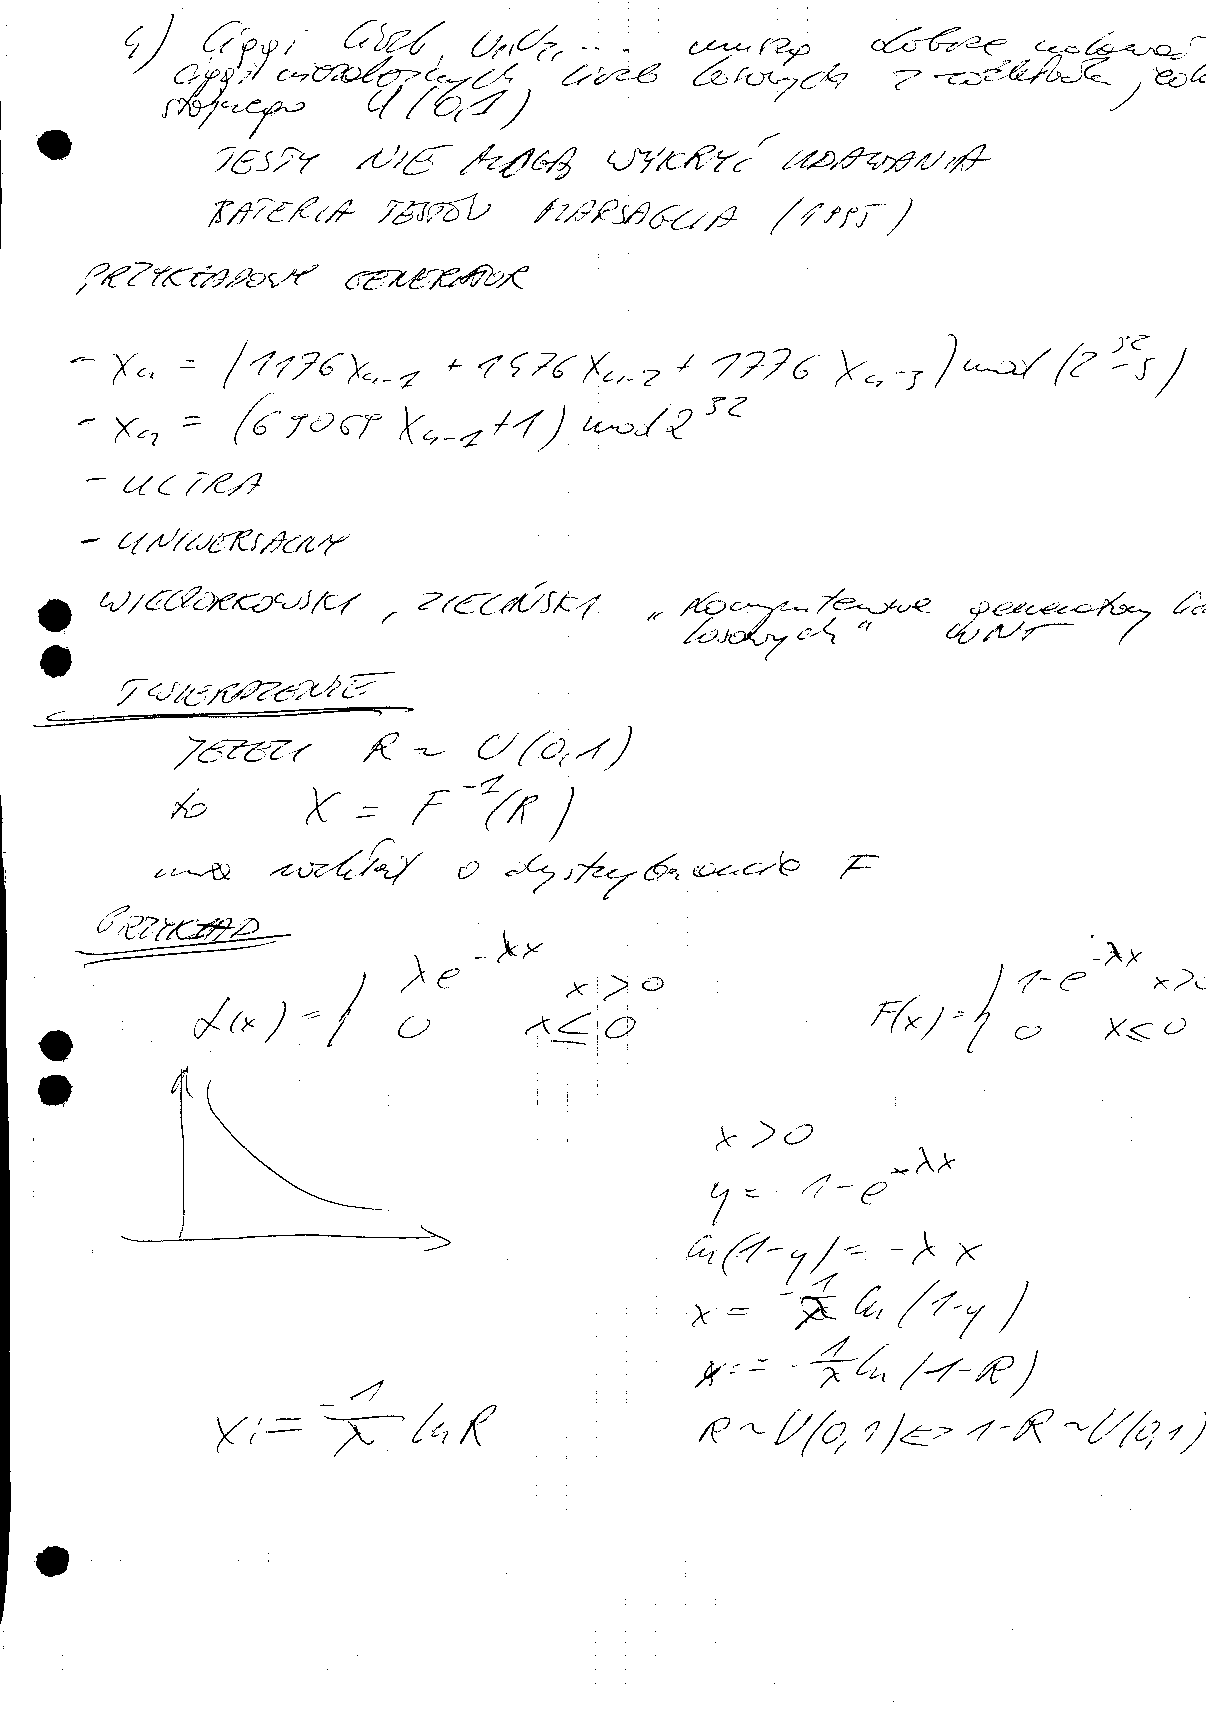 4) Ciągi liczb U₁, U₂, ... muszą dobrze udawać
ciągi niezależnych liczb losowych z rozkładu jedno
stajnego U(0,1)
TESTY NIE MOGĄ WYKRYĆ UDAWANIA
BATERIA TESTÓW MARSAGLIA (1995)
PRZYKŁADOWY GENERATOR
- Xₙ = (1176Xₙ₋₁ + 1476Xₙ₋₂ + 1776Xₙ₋₃) mod (2³²-5)
- Xₙ = (69069Xₙ₋₁+1) mod 2³²
- ULTRA
- UNIWERSALNY
WIECZORKOWSKI, ZIELIŃSKI „Komputerowe generatory li
losowych" WNT
TWIERDZENIE
JEŻELI R ~ U(0,1)
to X = F⁻¹(R)
ma rozkład o dystrybuancie F
PRZYKŁAD
f(x) = { λe^{-λx} x>0 F(x) = { 1-e^{-λx} x>0
0 x≤0 0 x≤0
x>0
y = 1-e^{-λx}
ln(1-y) = -λx
x = -1/λ ln(1-y)
x := -1/λ ln(1-R)
X := -1/λ ln R R~U(0,1) ⇔ 1-R~U(0,1)